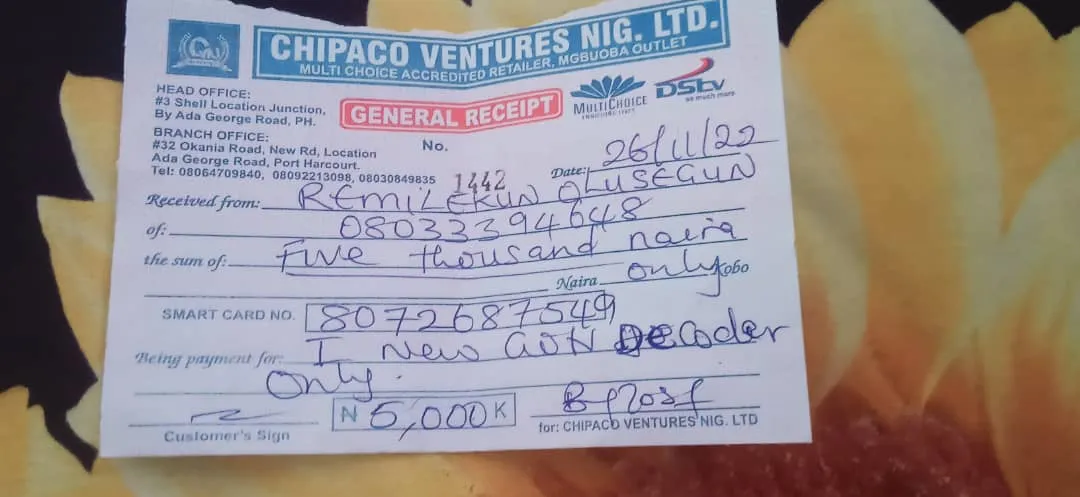 CHIPACO VENTURES NIG. LTD.
MULTI CHOICE ACCREDITED RETAILER, MGBUOBA OUTLET
HEAD OFFICE:
#3 Shell Location Junction,
By Ada George Road, PH.
BRANCH OFFICE:
#32 Okania Road, New Rd, Location
Ada George Road, Port Harcourt.
Tel: 08064709840, 08092213098, 08030849835
GENERAL RECEIPT
MULTICHOICE
ENRICHING LIVES
DStv
so much more
No. 1442
Date: 26/11/22
Received from: REMILEKUN OLUSEGUN
of: 08033394648
the sum of: Five thousand naira
Naira only Kobo
SMART CARD NO. 8072687549
Being payment for: 1 New GOtv Decoder
Only.
Customer's Sign
N 5,000 K
for: CHIPACO VENTURES NIG. LTD